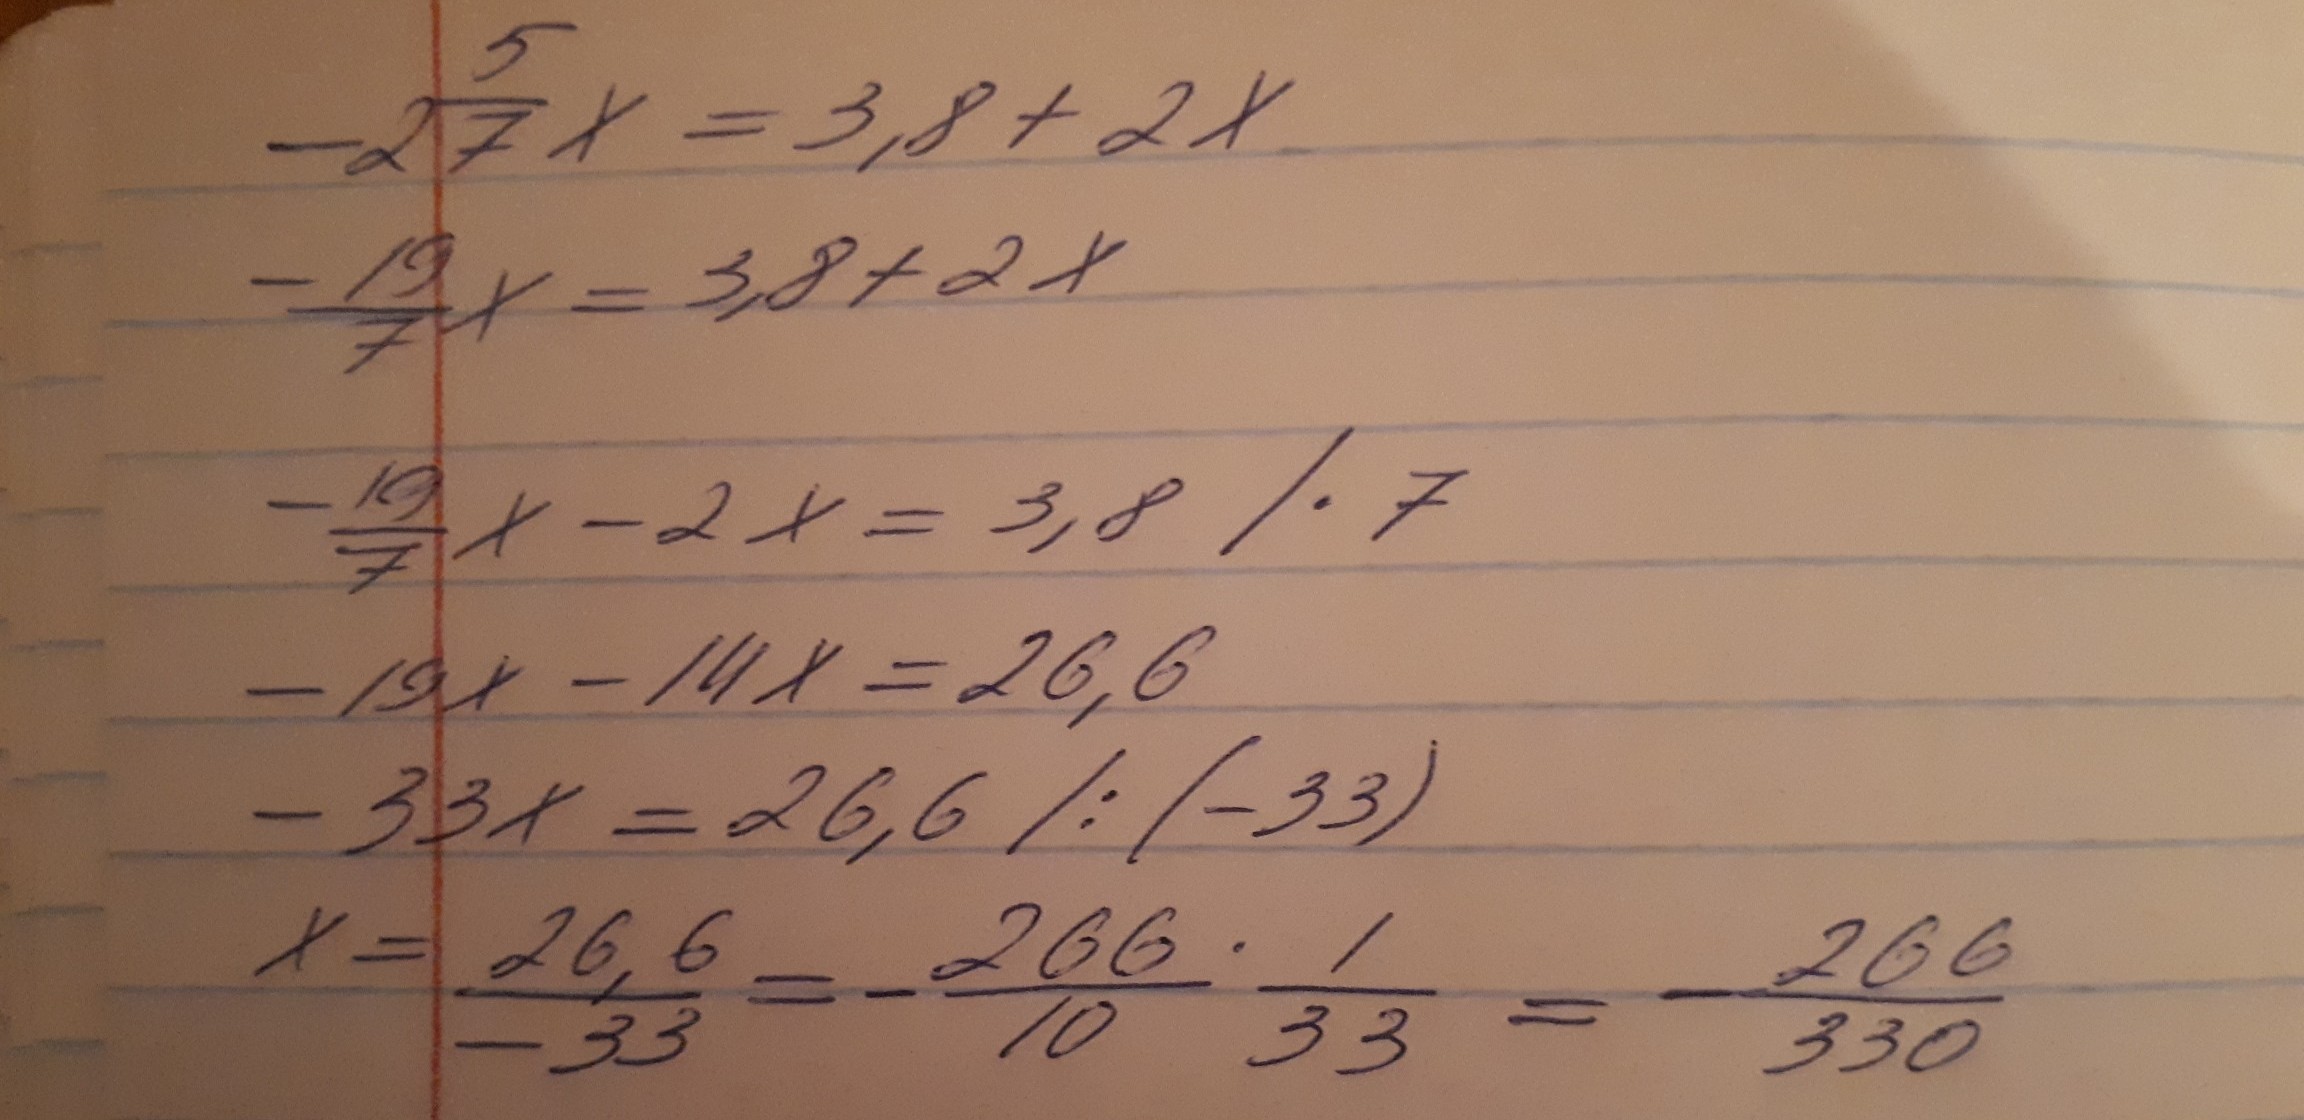 -2 5/7 x = 3,8 + 2x
-19/7 x = 3,8 + 2x
-19/7 x - 2x = 3,8 / · 7
-19x - 14x = 26,6
-33x = 26,6 / : (-33)
x = 26,6/-33 = - 266/10 · 1/33 = - 266/330